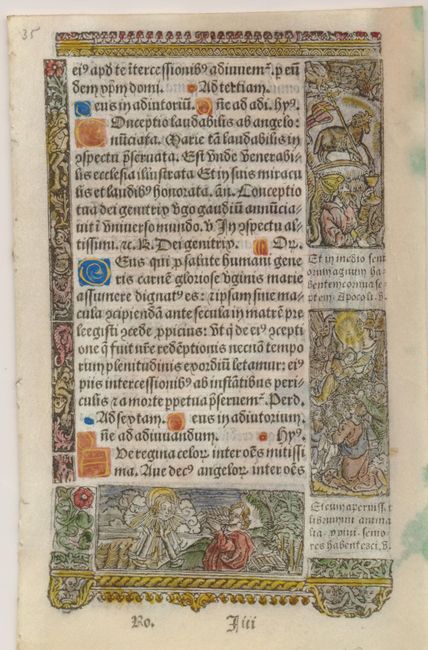 35
eiꝰ apd te ĩtercessionibꝰ adiuuemʳ. p eũ
dem xp̃m dom̃. Ad tertiam.
eus in adiutoriũ. ñe ad adi. hyꝰ.
Onceptio laudabilis ab angelo
nũciata. Marie tã laudabilis in
ꝯspectu p̃seruata. Est vnde venerabi-
lis ecclesia illustrata Et in suis miracu
lis et laudibꝰ honorata. añ. Conceptio
tua dei genitrix vgo gaudiũ annũcia-
uit ĩ vniuerso mundo. v̄ In ꝯspectu al-
tissimi. ꝛc. R. Dei genitrix. Or.
Eus qui ꝓ salute humani gene
ris carnẽ gloriose vginis marie
assumere dignatꝰ es: ꝛ ipsam sine ma-
cula ꝯcipiendã ante secula in matrẽ pre
elegisti ꝯcede ꝓpicius: vt q̃ de eiꝰ ꝯcepti
one q̃ fuit nr̃e redẽptionis necnõ tempo
rum plenitudinis exordiũ letamur: eiꝰ
piis intercessionibꝰ ab instãtibus peri-
culis ꝛ a morte ꝑpetua p̃seruemʳ. Perd.
Ad sextam. eus in adiutorium.
ñe ad adiuuandum. Hyꝰ.
Ve regina celoꝝ inter oẽs mitissi
ma. Aue decꝰ angeloꝝ inter oẽs
Et in medio seni
orum agnum ha-
bentem cornua se-
ptem. Apocoli. v.
Et cum aperuisset
librum .iiii. anima
lia .xxiiii. senio
res habentes ci. v.
Ro. J iii